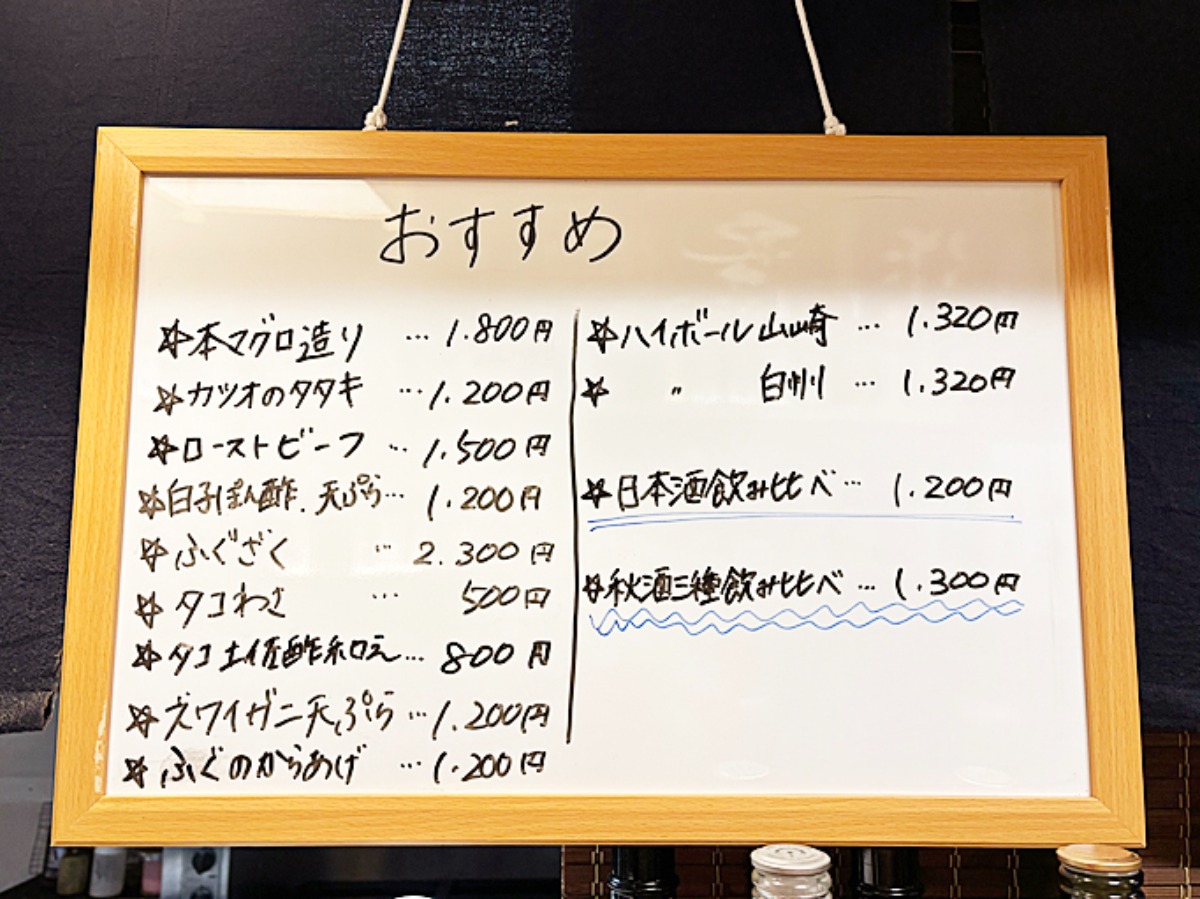 おすすめ
☆本マグロ造り …1.800円
☆カツオのタタキ …1.200円
☆ローストビーフ …1.500円
☆白子ぽん酢、天ぷら…1.200円
☆ふぐざく …2.300円
☆タコわさ … 500円
☆タコ土佐酢和え… 800円
☆ズワイガニ天ぷら …1.200円
☆ふぐのからあげ …1.200円
☆ハイボール山崎 … 1.320円
☆ 〃 白州 … 1.320円
☆日本酒飲み比べ… 1.200円
☆秋酒三種飲み比べ… 1.300円